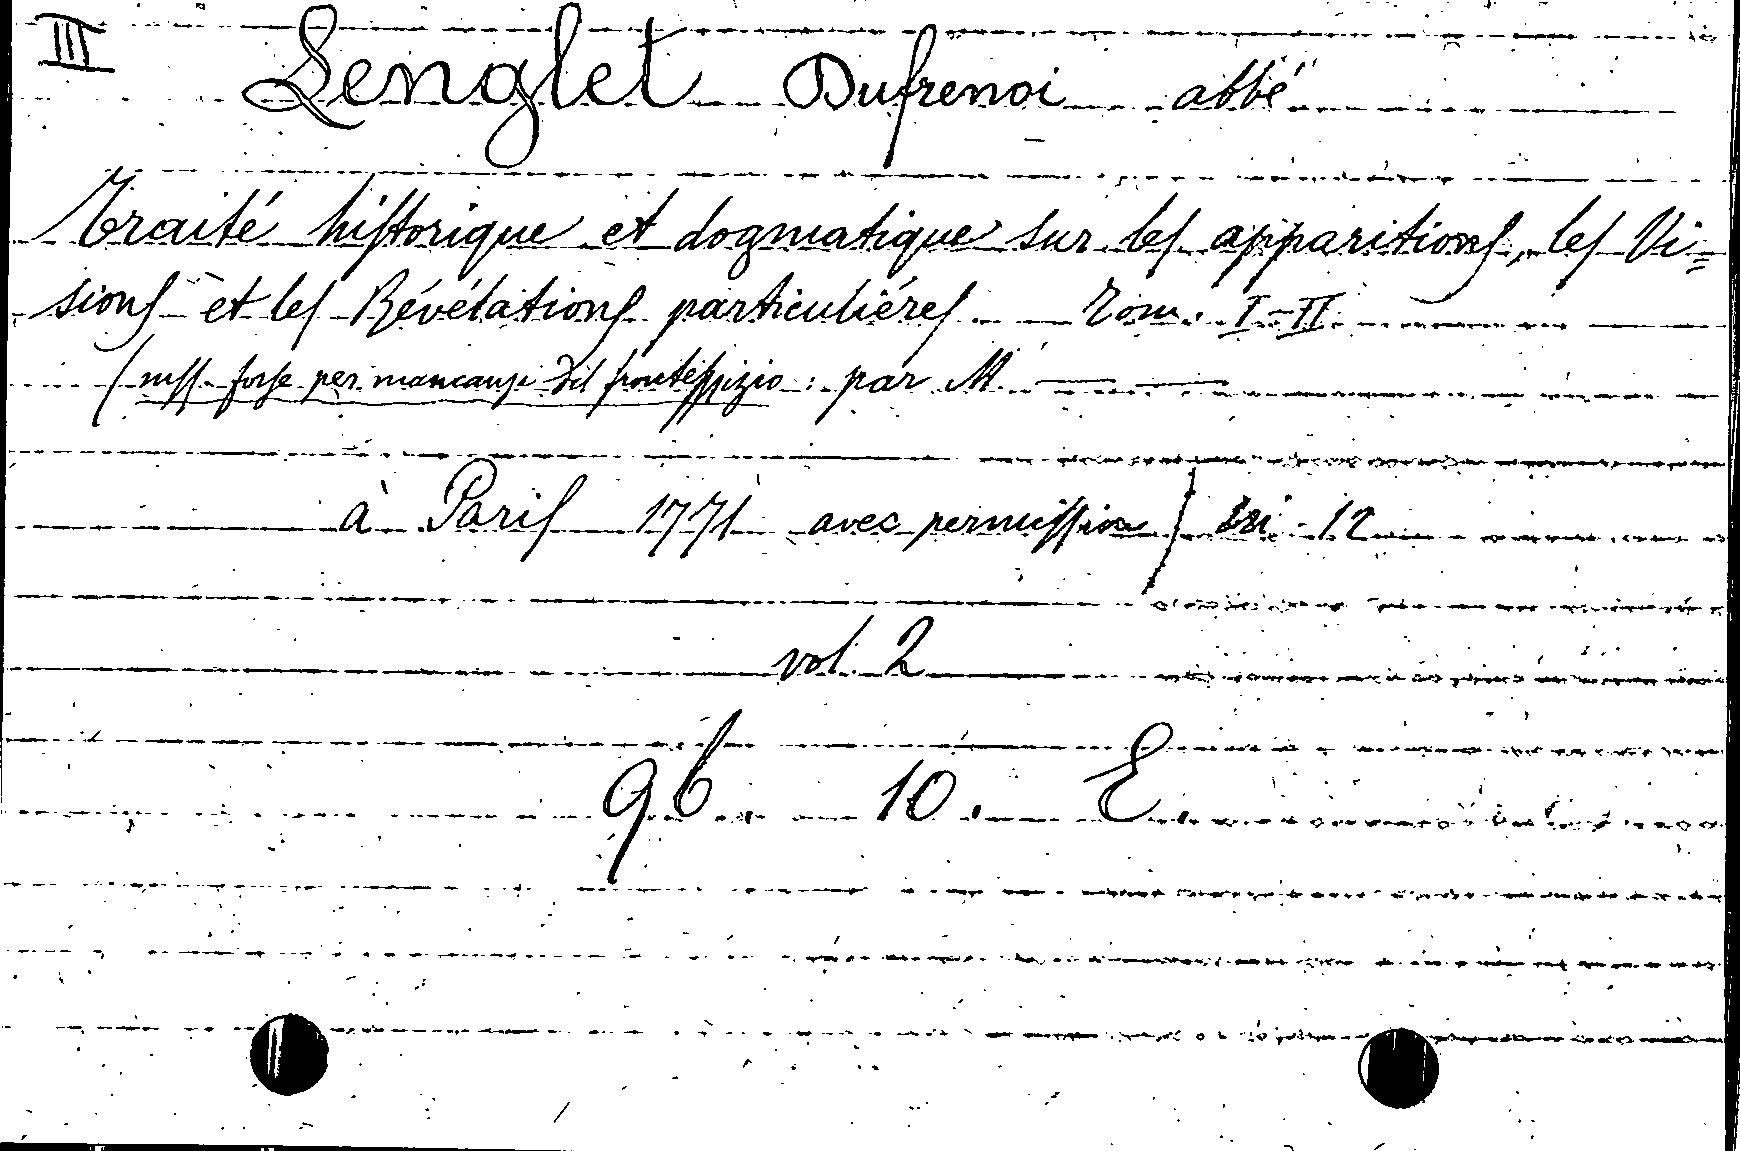 III Lenglet Dufrenoi abbé
Traité historique et dogmatique sur les apparitions, les Vi=
sions et les Révélations particuliéres Tom. I-II
(mss. forse per mancanza del frontespizio: par M. — —
à Paris 1771 avec permission) in-12
vol. 2
96. 10. E.